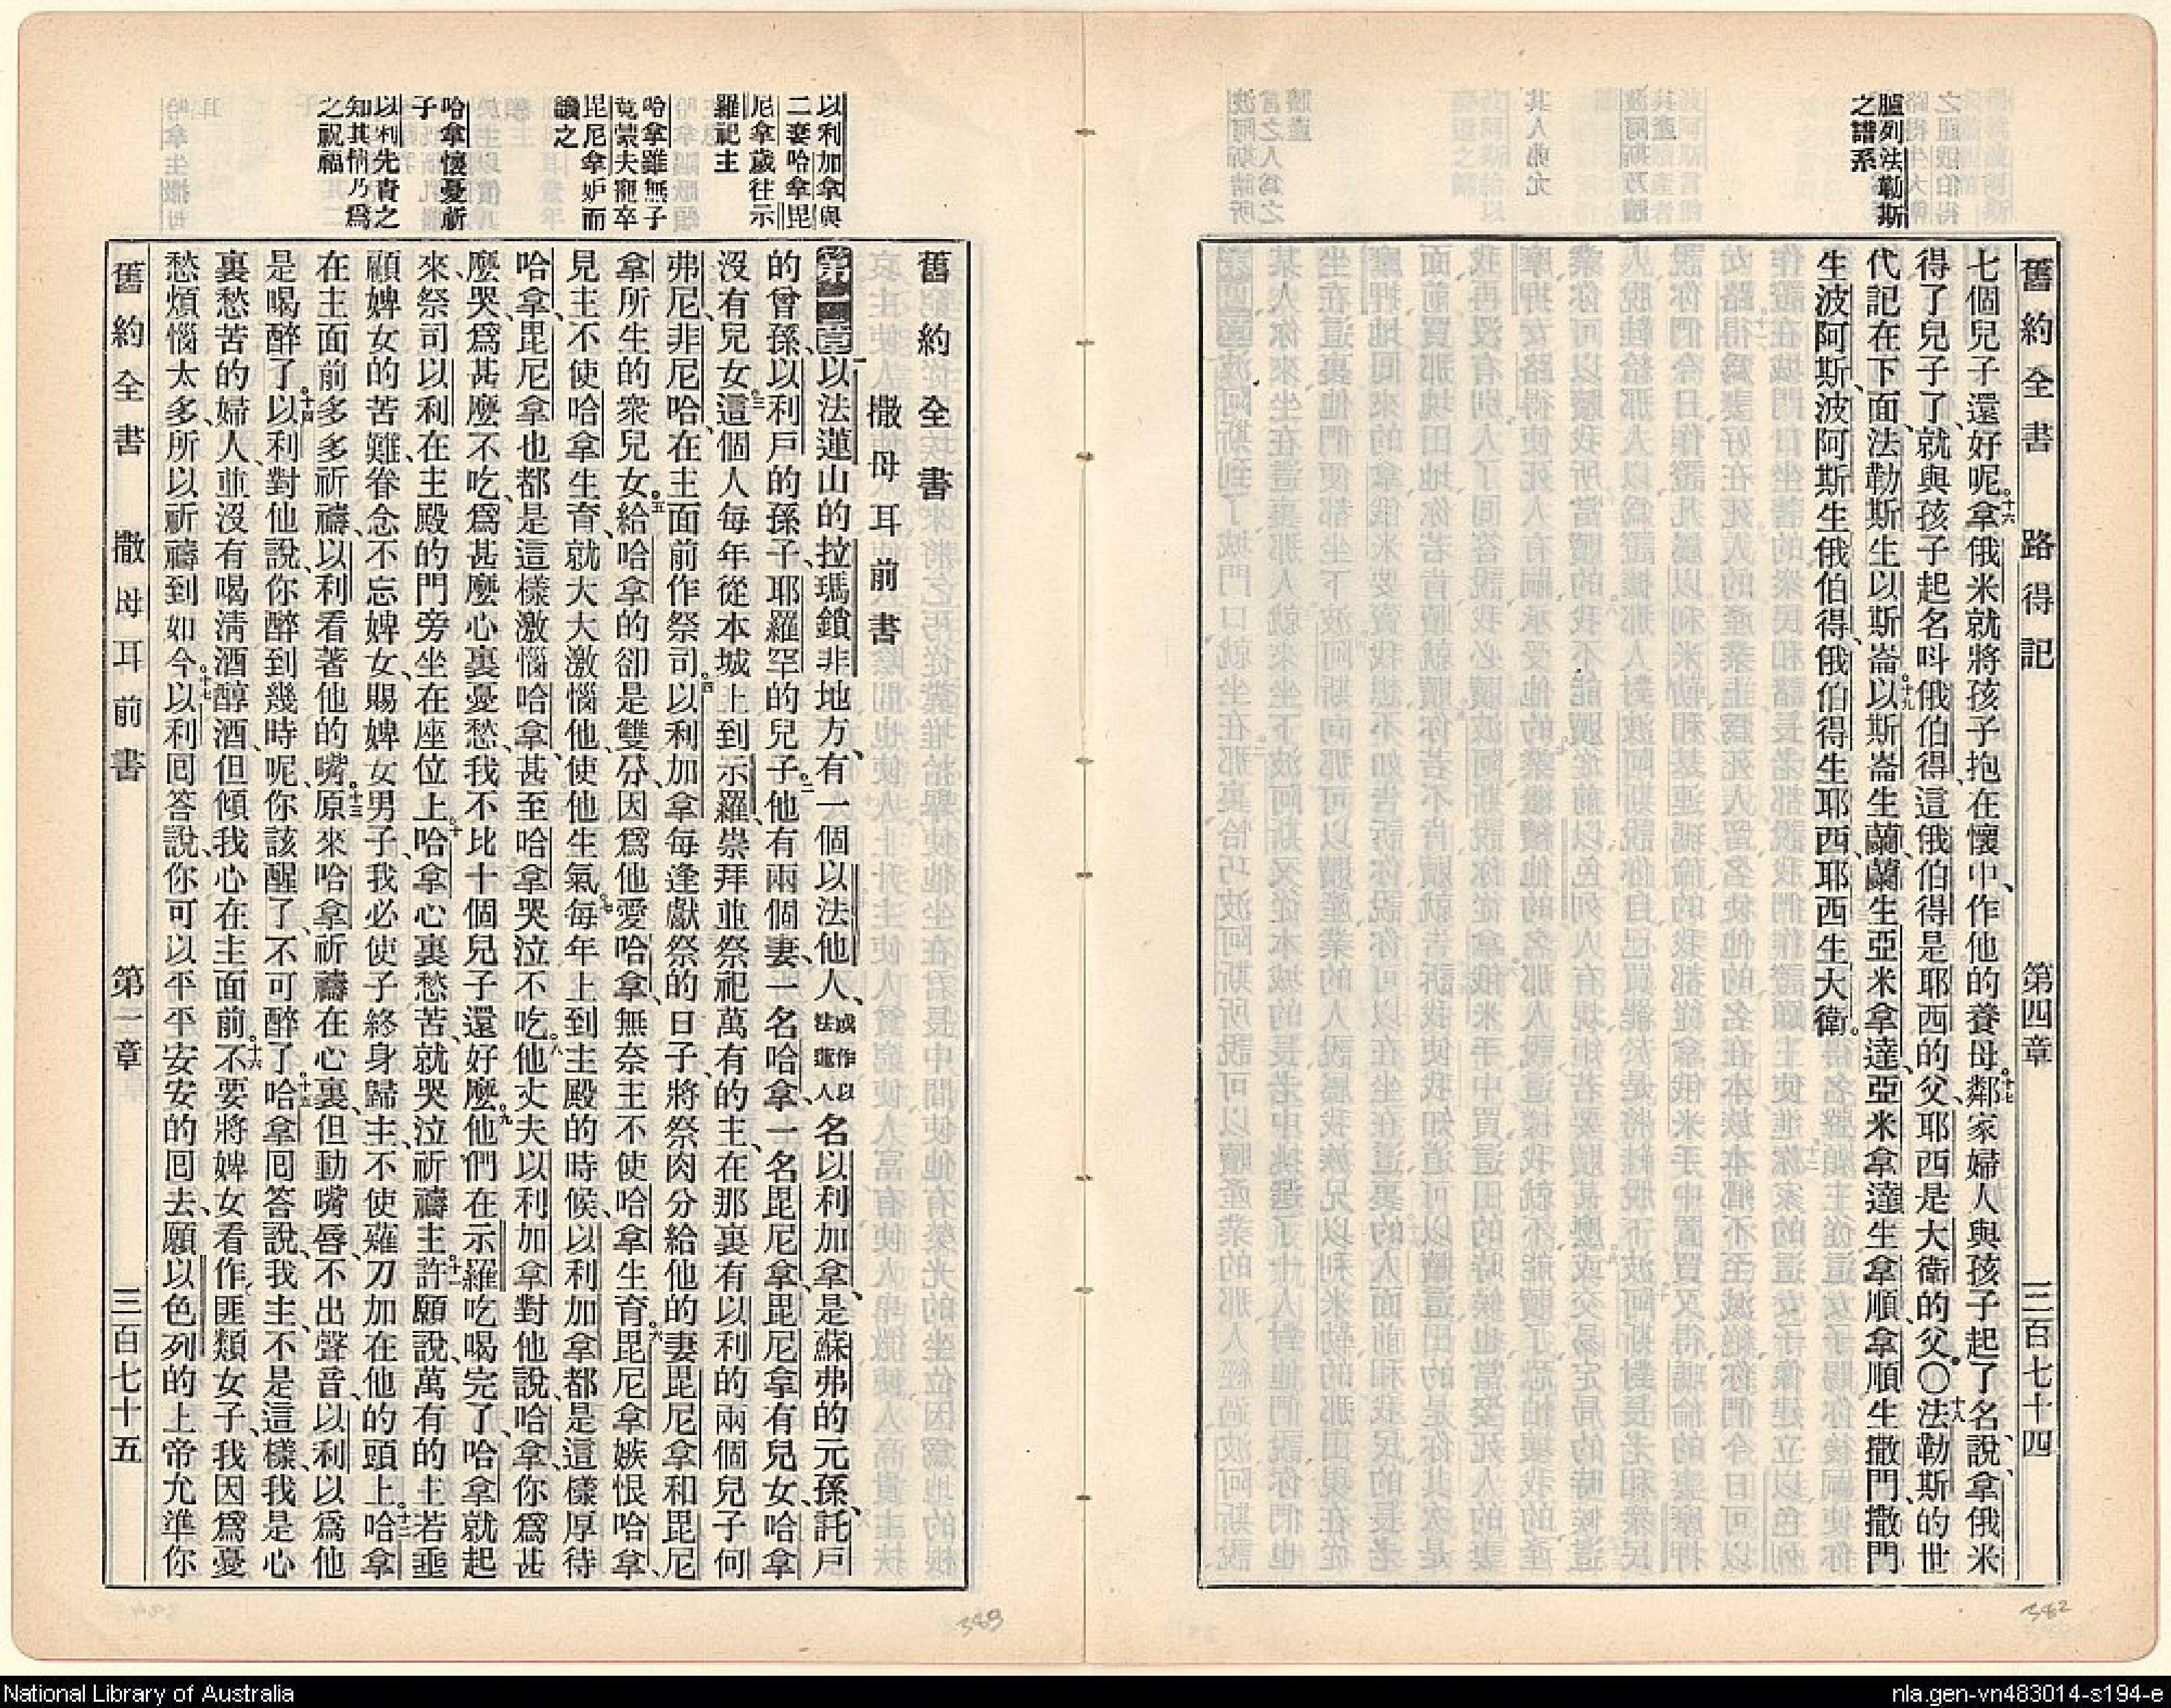 舊約全書 路得記 第四章 三百七十四
臚列法勒斯
之譜系
七個兒子還好呢。十六拿俄米就將孩子抱在懷中、作他的養母。十七鄰家婦人與孩子起了名、說、拿俄米
得了兒子了、就與孩子起名呌俄伯得、這俄伯得是耶西的父、耶西是大衛的父。〇十八法勒斯的世
代記在下面、法勒斯生以斯崙、十九以斯崙生蘭、蘭生亞米拿達、亞米拿達生拿順、拿順生撒門、撒門
生波阿斯、波阿斯生俄伯得、俄伯得生耶西、耶西生大衛。
382
舊約全書
撒母耳前書
以利加拿與
二妻哈拿毘
尼拿歲往示
羅祀主
哈拿雖無子
竟蒙夫寵卒
毘尼拿妒而
讟之
哈拿懷憂祈
子
以利先責之
知其情乃爲
之祝福
第一章 一以法蓮山的拉瑪鎖非地方、有一個以法他人、或作以法蓮人名以利加拿、是蘇弗的元孫、託戶
的曾孫、以利戶的孫子、耶羅罕的兒子。二他有兩個妻、一名哈拿、一名毘尼拿、毘尼拿有兒女、哈拿
沒有兒女。三這個人每年從本城上到示羅、崇拜並祭祀萬有的主、在那裏有以利的兩個兒子何
弗尼、非尼哈、在主面前作祭司。四以利加拿每逢獻祭的日子、將祭肉分給他的妻毘尼拿和毘尼
拿所生的衆兒女。五給哈拿的卻是雙分、因爲他愛哈拿、無奈主不使哈拿生育。六毘尼拿嫉恨哈拿、
見主不使哈拿生育、就大大激惱他、使他生氣。七每年上到主殿的時候、以利加拿都是這樣厚待
哈拿、毘尼拿也都是這樣激惱哈拿、甚至哈拿哭泣不吃。八他丈夫以利加拿對他說、哈拿、你爲甚
麼哭、爲甚麼不吃、爲甚麼心裏憂愁、我不比十個兒子還好麼。九他們在示羅吃喝完了、哈拿就起
來、祭司以利在主殿的門旁坐在座位上。十哈拿心裏愁苦、就哭泣祈禱主、十一許願說、萬有的主若垂
顧婢女的苦難、眷念不忘婢女、賜婢女男子、我必使子終身歸主、不使薙刀加在他的頭上。十二哈拿
在主面前多多祈禱、以利看著他的嘴。十三原來哈拿祈禱在心裏、但動嘴唇、不出聲音、以利以爲他
是喝醉了。十四以利對他說、你醉到幾時呢、你該醒了、不可醉了。十五哈拿囘答說、我主、不是這樣、我是心
裏愁苦的婦人、並沒有喝淸酒醇酒、但傾我心在主面前。十六不要將婢女看作匪類女子、我因爲憂
愁煩惱太多、所以祈禱到如今。十七以利囘答說、你可以平平安安的囘去、願以色列的上帝允準你
舊約全書 撒母耳前書 第一章 三百七十五
383
National Library of Australia
nla.gen-vn483014-s194-e